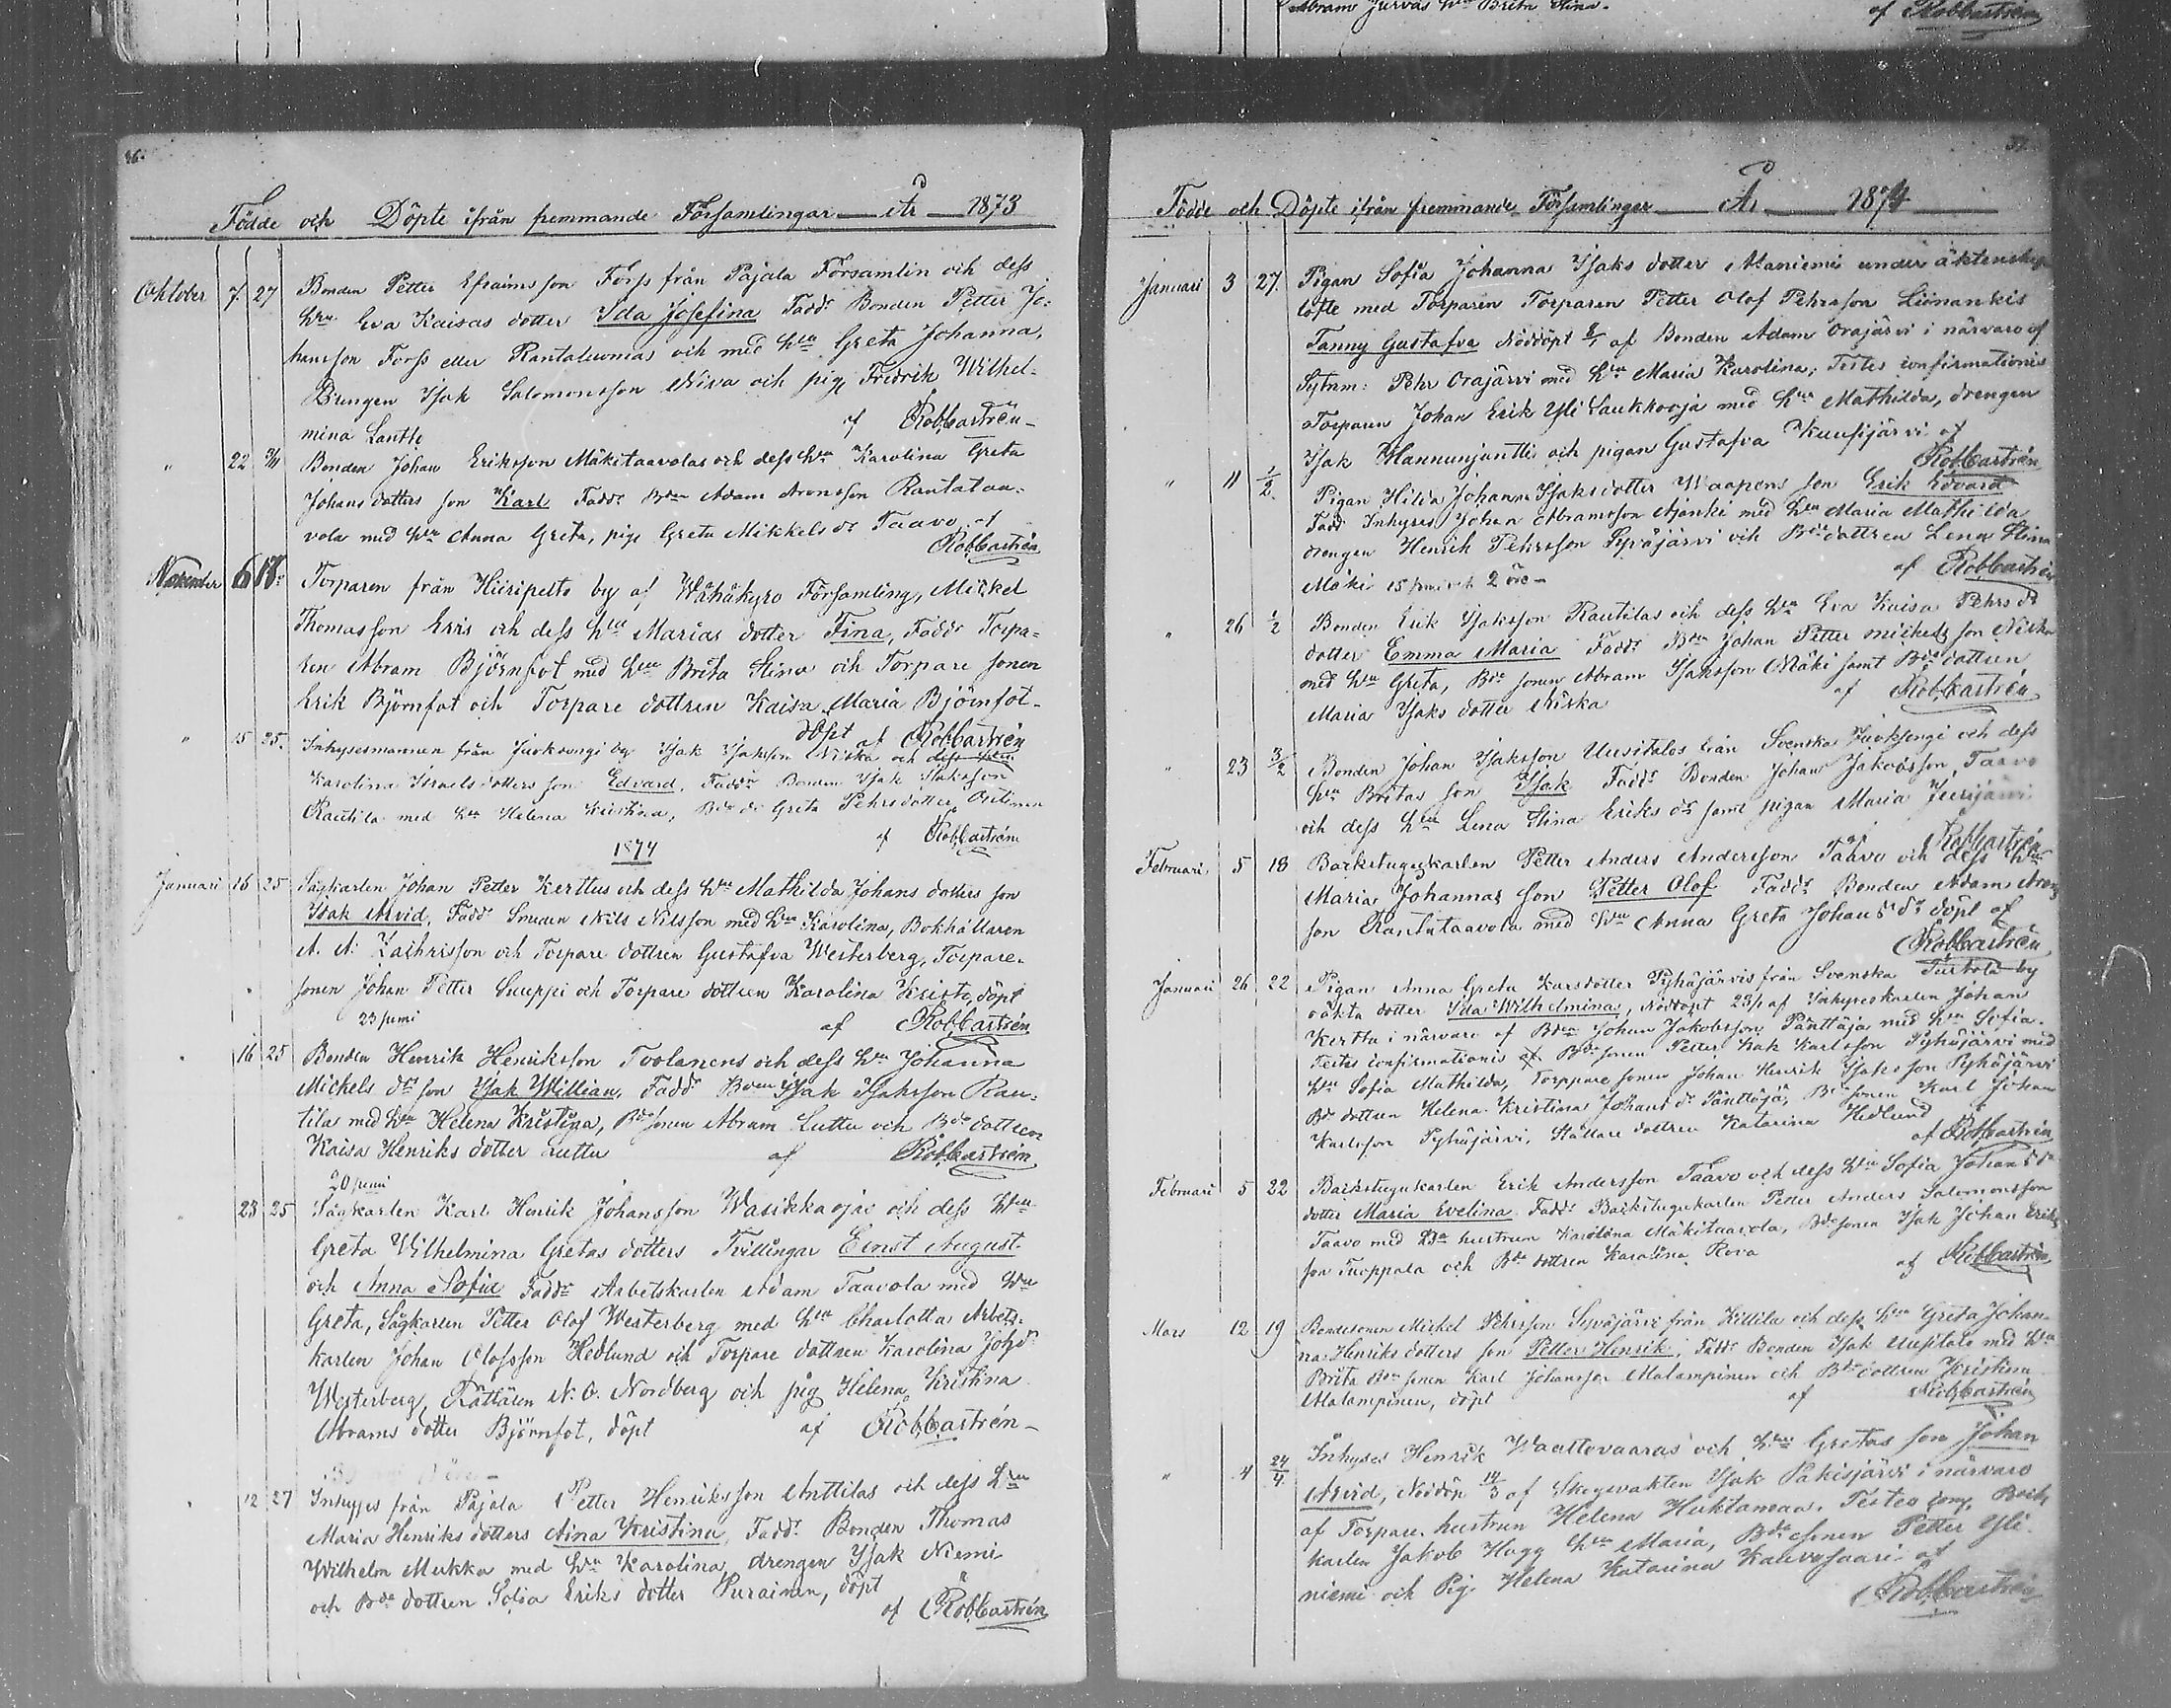 Abram Jurvas h:u Brita Stina.
af RobCastrén
Födde och Döpte ifrån fremmande Församlingar År 1873
Oktober 7. 27 Bonden Petter Efraimsson Forss från Pajala Församlin och dess
h:u Eva Kaisas dotter Ida Josefina Fadd: Bonden Petter Jo-
hansson Forss eller och med h:u Greta Johanna,
Drengen Isak Salomonsson Niva och pig. Fredrik Wilhel-
mina Lantto af RobCastrén
" 22 3/11 Bonden Johan Eriksson Mäkitaavolas och dess h:u Karolina Greta
Johans dotters son Karl Fadd: Bden Adam Aronsson Rantataa-
vola med h:u Anna Greta, pige Greta Mikkels dr Taavo af
RobCastrén
November 6 17: Torparen från Hiiripelto by af Wähäkyro Församling, Mickel
Thomasson Eris och dess h:u Marias dotter Fina, Fadd: Torpa-
ren Abram Björnfot med h:u Brita Stina och Torpare sonen
Erik Björnfot och Torpare dottren Kaisa Maria Björnfot-
döpt af RobCastrén
" 15 25. Inhysesmannen från Juoksengi by Isak Isaksson Niska och dess
Karolina Israels dotters son Edvard, Fadd: Bonden Isak Isaksson
Rautila med h:u Helena Kristina, Bde dr Greta Pehrsdotter
af RobCastrén
1874
Januari 16 25 Sågkarlen Johan Petter Kerttus och dess h:u Mathilda Johans dotters son
Isak Arvid, Fadd: Smeden Nils Nilsson med h:u Karolina, Bokhållaren
A. A. Zachrisson och Torpare dottren Gustafva Westerberg, Torpare-
sonen Johan Petter Seuppi och Torpare dottren Karolina Kristo, döpt
23 pemi af RobCastrén
16 25 Bonden Henrik Henriksson Tvolanens och dess h:u Johanna
Mickels drs son Isak Willian, Fadd: Bden Isak Isaksson Rau-
tilas med h:u Helena Kristina, Bde sonen Abram Luttu och Bde dottren
Kaisa Henriks dotter Luttu af RobCastrén
20 pemi
23 25 Sågkarlen Karl Henrik Johansson Wasikkaojas och dess h:u
Greta Vilhelmina Gretas dotters Tvillingar Ernst August
och Anna Sofia Fadd: Arbetskarlen Adam Taavola med h:u
Greta, Sågkarlen Petter Olof Westerberg med h:u Charlotta Arbets-
karlen Johan Olofsson Hedlund och Torpare dottren Karolina Johsdr
Westerberg, Rättaren N. O. Nordberg och pig Helena Kristina
Abrams dotter Björnfot, döpt af RobCastrén
12 27 Inhyses från Pajala Petter Henriksson Anttilas och dess h:u
Maria Henriks dotters Aina Kristina, Fadd: Bonden Thomas
Wilhelm Mukka med h:u Karolina, drengen Isak Niemi
och Bde dottren Sofia Eriks dotter Purainen, döpt
af RobCastrén
Födde och Döpte ifrån fremmande Församlingar År 1874
Januari 3 27. Pigan Sofia Johanna Isaks dotter Alaniemi under äktenskaps
löfte med Torparen Torparen Petter Olof Pehrsson Liinankis
Fanny Gustafva Nöddöpt af Bonden Adam Orajärvi i närvaro af
Pehr Orajärvi med h:u Maria Karolina; Testes confirmationis
Torparen Johan Erik Yli Laukkooja med h:u Mathilda, drengen
Isak Hannunjuntti och pigan Gustafva Kuusijärvi af
RobCastrén
" 11 1/2. Pigan Hilda Johanna Isaksdotter Waapens son Erik Edvard
Fadd Inhyses Johan Abramsson Ajanki med h:u Maria Mathilda
drengen Henrik Pehrsson Syväjärvi och Bde dottren Lena Stina
Mäki 15 pemi och 2 öre af RobCastrén
" 26 1/2 Bonden Erik Isaksson Rautilas och dess h:u Eva Kaisa Pehrs dr
dotter Emma Maria Fadd: Bden Johan Petter Mickels son Niska
med h:u Greta, Bde sonen Abram Isaksson Mäki samt Bde dottren
Maria Isaks dotter Niska af RobCastrén
" 23 3/2 Bonden Johan Isaksson Uusitalos från Svenska Juoksengi och dess
h:u Britas son Isak Fadd: Bonden Johan Jakobsson Taavo
och dess h:u Lena Stina Eriks dr samt pigan Maria
af RobCastrén
Februari 5 18 Backstugukarlen Petter Anders Andersson Taavo och dess h:u
Maria Johannas son Petter Olof Fadd: Bonden Adam Arons
son Rantataavola med h:u Anna Greta Johans dr döpt af
RobCastrén
Januari 26 22 Pigan Anna Greta Karsdotter Pyhäjärvis från Svenska Turtola by
oäkta dotter Ida Wilhelmina, Nöddöpt 23/1 af Inhyseskarlen Johan
Kerttu i närvaro af Bden Johan Jakobsson Pänttäjä med h:u Sofia.
Testes confirmationis Bde sonen Petter Isak Karlsson Pyhäjärvi med
h:u Sofia Mathilda, Torppare sonen Johan Henrik Isaksson Pyhäjärvi
Bde dottren Helena Kristina Johans dr Pänttäjä, Bde sonen Karl Johan
Karlsson Pyhäjärvi, Hållare dottren Katarina Hedlund
af RobCastrén
Februari 5 22 Backstugukarlen Erik Andersson Taavo och dess h:u Sofia Johans dr
dotter Maria Evelina Fadd: Backstugukarlen Petter Anders Salomonsson
Taavo med hustrun Karolina Mäkitaavola, Bde sonen Isak Johan Eriks
son Tuoppala och Bde dottren Karolina Rova
af RobCastrén
Mars 12 19 Bondesonen Mickel Pehrsson Syväjärvi från Kittila och dess h:u Greta Johan-
na Henriks dotters son Petter Henrik, Fadd: Bonden Isak Uusitalo med h:u
Brita Bde sonen Karl Johansson Alalampinen och Bde dottren Kristina
Alalampinen, döpt af RobCastrén
" 4 24/4. Inhyses Henrik Waattovaaras och h:u Gretas son Johan
Arvid, Nöddöp 14/3 af Skogsvakten Isak Pakisjärvi i närvaro
af Torpare hustrun Helena Huktamaa. Testes conf. Back
karlen Jakob Hugg h:u Maria, Bde sonen Petter Yli-
niemi och Pig. Helena Katarina Kauvosaari af
RobCastrén